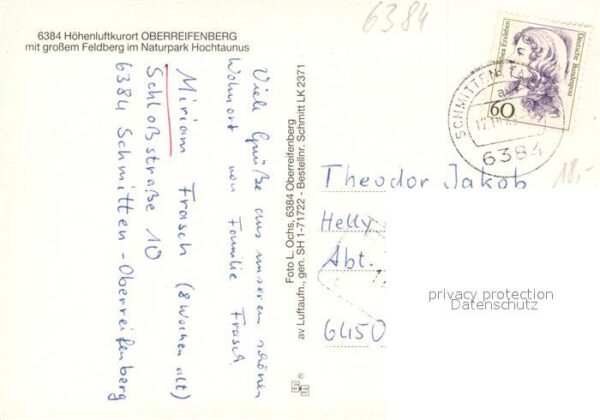 6384 Höhenluftkurort OBERREIFENBERG
mit großem Feldberg im Naturpark Hochtaunus
6384
Viele Grüße aus unserem schönen
Wohnort von Familie Frasch
Miriam Frasch (8 Wochen alt)
Schloßstraße 10
6384 Schmitten-Oberreifenberg
Foto L. Ochs, 6384 Oberreifenberg
av Luftaufn., gen. SH 1-71722 - Bestellnr. Schmitt LK 2371
Deutsche Bundespost
60
SCHMITTEN
6384
18,-
Theodor Jakob
Helly
Abt.
6450
privacy protection
Datenschutz